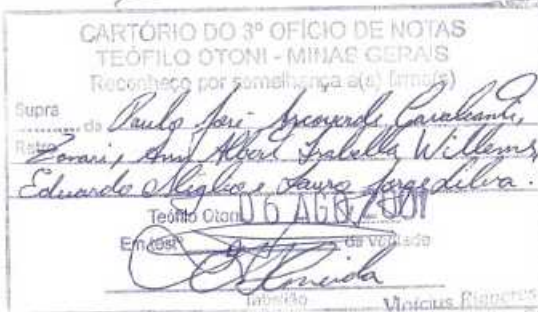 CARTÓRIO DO 3º OFÍCIO DE NOTAS
TEÓFILO OTONI - MINAS GERAIS
Reconheço por semelhança a(s) firma(s)
Supra
Retro da Paulo José Arcoverde Cavalcanti,
Ann Albert Isabella Willems,
Eduardo Miglio e Lauro Jorge Silva.
Teófilo Otoni 06 AGO 2001
Em testº da verdade
Almeida
Tabelião
Vinicius